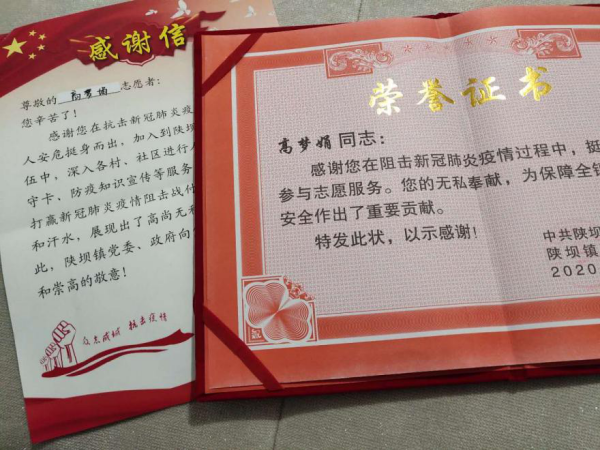 感谢信
尊敬的高梦娟志愿者：
您辛苦了！
感谢您在抗击新冠肺炎疫
人安危挺身而出，加入到陕坝
伍中，深入各村、社区进行
守卡、防疫知识宣传等服务
打赢新冠肺炎疫情阻击战付
和汗水，展现出了高尚无私
此，陕坝镇党委、政府向
和崇高的敬意！
众志成城 抗击疫情
荣誉证书
高梦娟同志：
感谢您在阻击新冠肺炎疫情过程中，挺
参与志愿服务。您的无私奉献，为保障全镇
安全作出了重要贡献。
特发此状，以示感谢！
中共陕坝
陕坝镇
2020